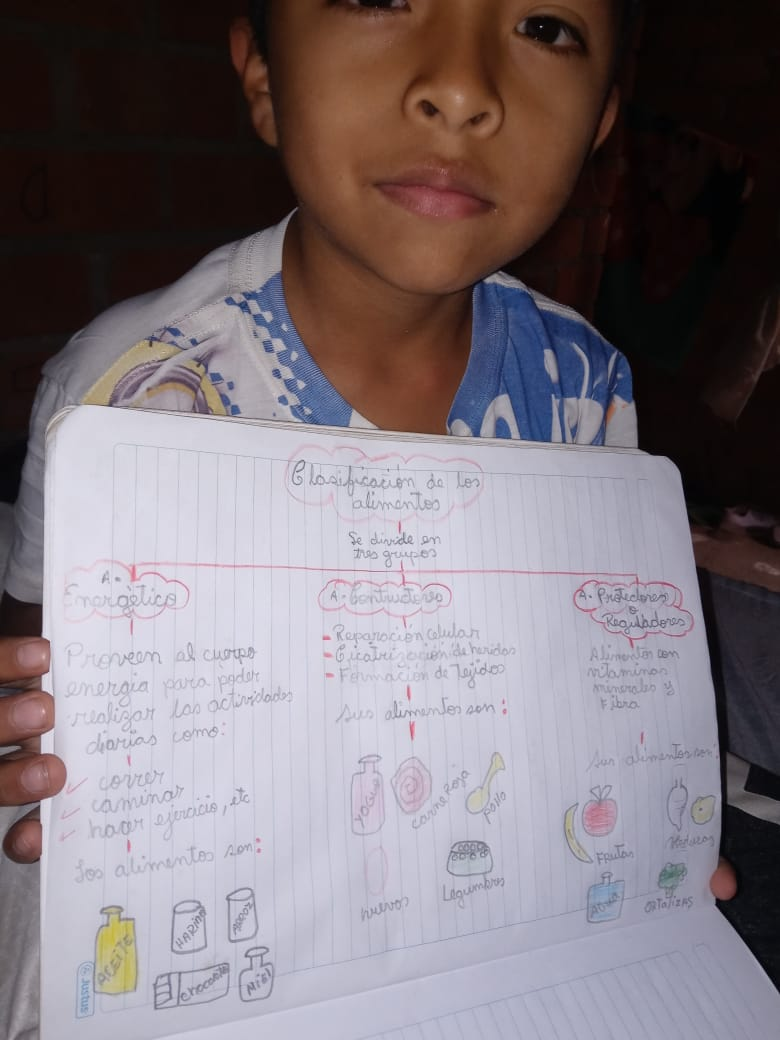 Clasificación de los
alimentos
Se divide en
tres grupos
A.
Energético
Proveen al cuerpo
energia para poder
realizar las actividades
diarias como:
correr
caminar
hacer ejercicio, etc
Los alimentos son:
ACEITE
HARINA
ARROZ
chocolate
Miel
Justus
A. Contructores
Reparación celular
Cicatrización de heridas
Formación de Tejidos
sus alimentos son:
YOGUR
carne roja
pollo
huevos
Legumbres
A. Protectores
o
Reguladores
Alimentos con
vitaminas
minerales y
Fibra
sus alimentos son:
Frutas
Verduras
AGUA
ORTALIZAS